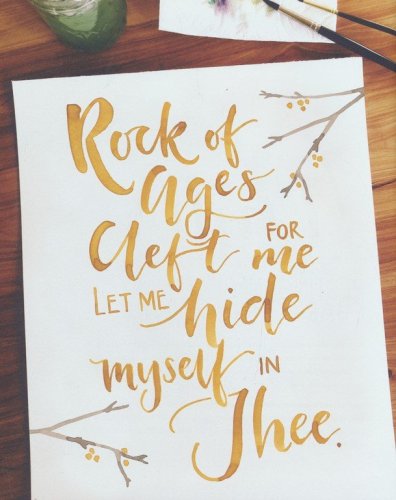 Rock of
Ages
Cleft FOR me
LET ME hide
myself IN
Thee.